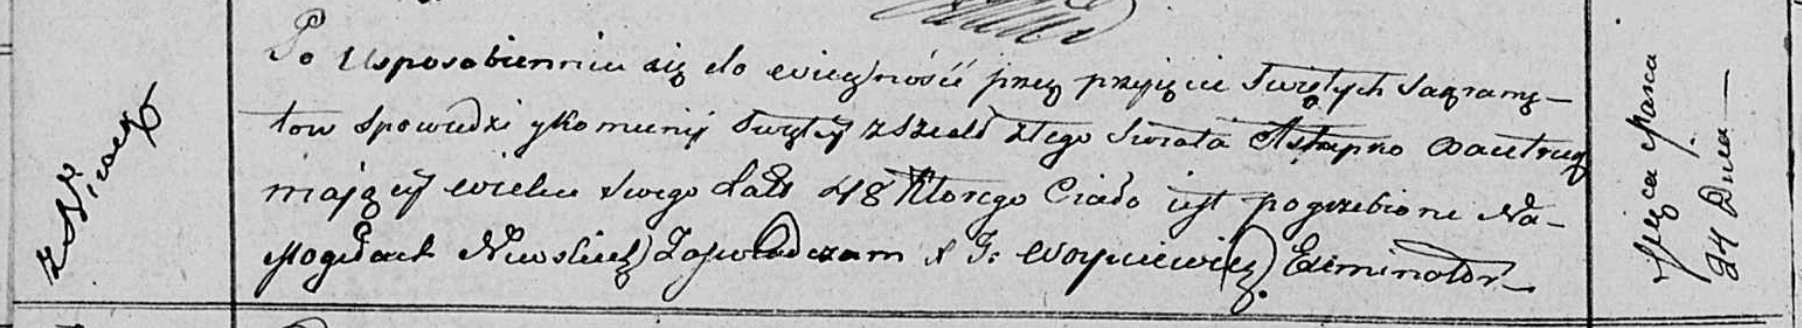 z Niwek
Po Usposobienniu się do wiecznośći przez przyięcie Swiętych Sakramę-
tow Spowiedzi y komunij Swiętey zszedł ztego Swiata Astapko
maiący wieku swego Lat 48 Ktorego Ciało iest pogrzebione Na-
Mogiłach Niwskich Zaswiadczam X J: Woyniewicz Exminator
Miesięca Marca
24 Dnia